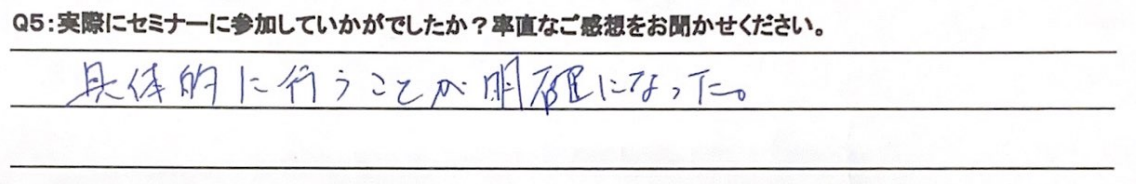 Q5:実際にセミナーに参加していかがでしたか？率直なご感想をお聞かせください。
具体的に行うことが明確になった。